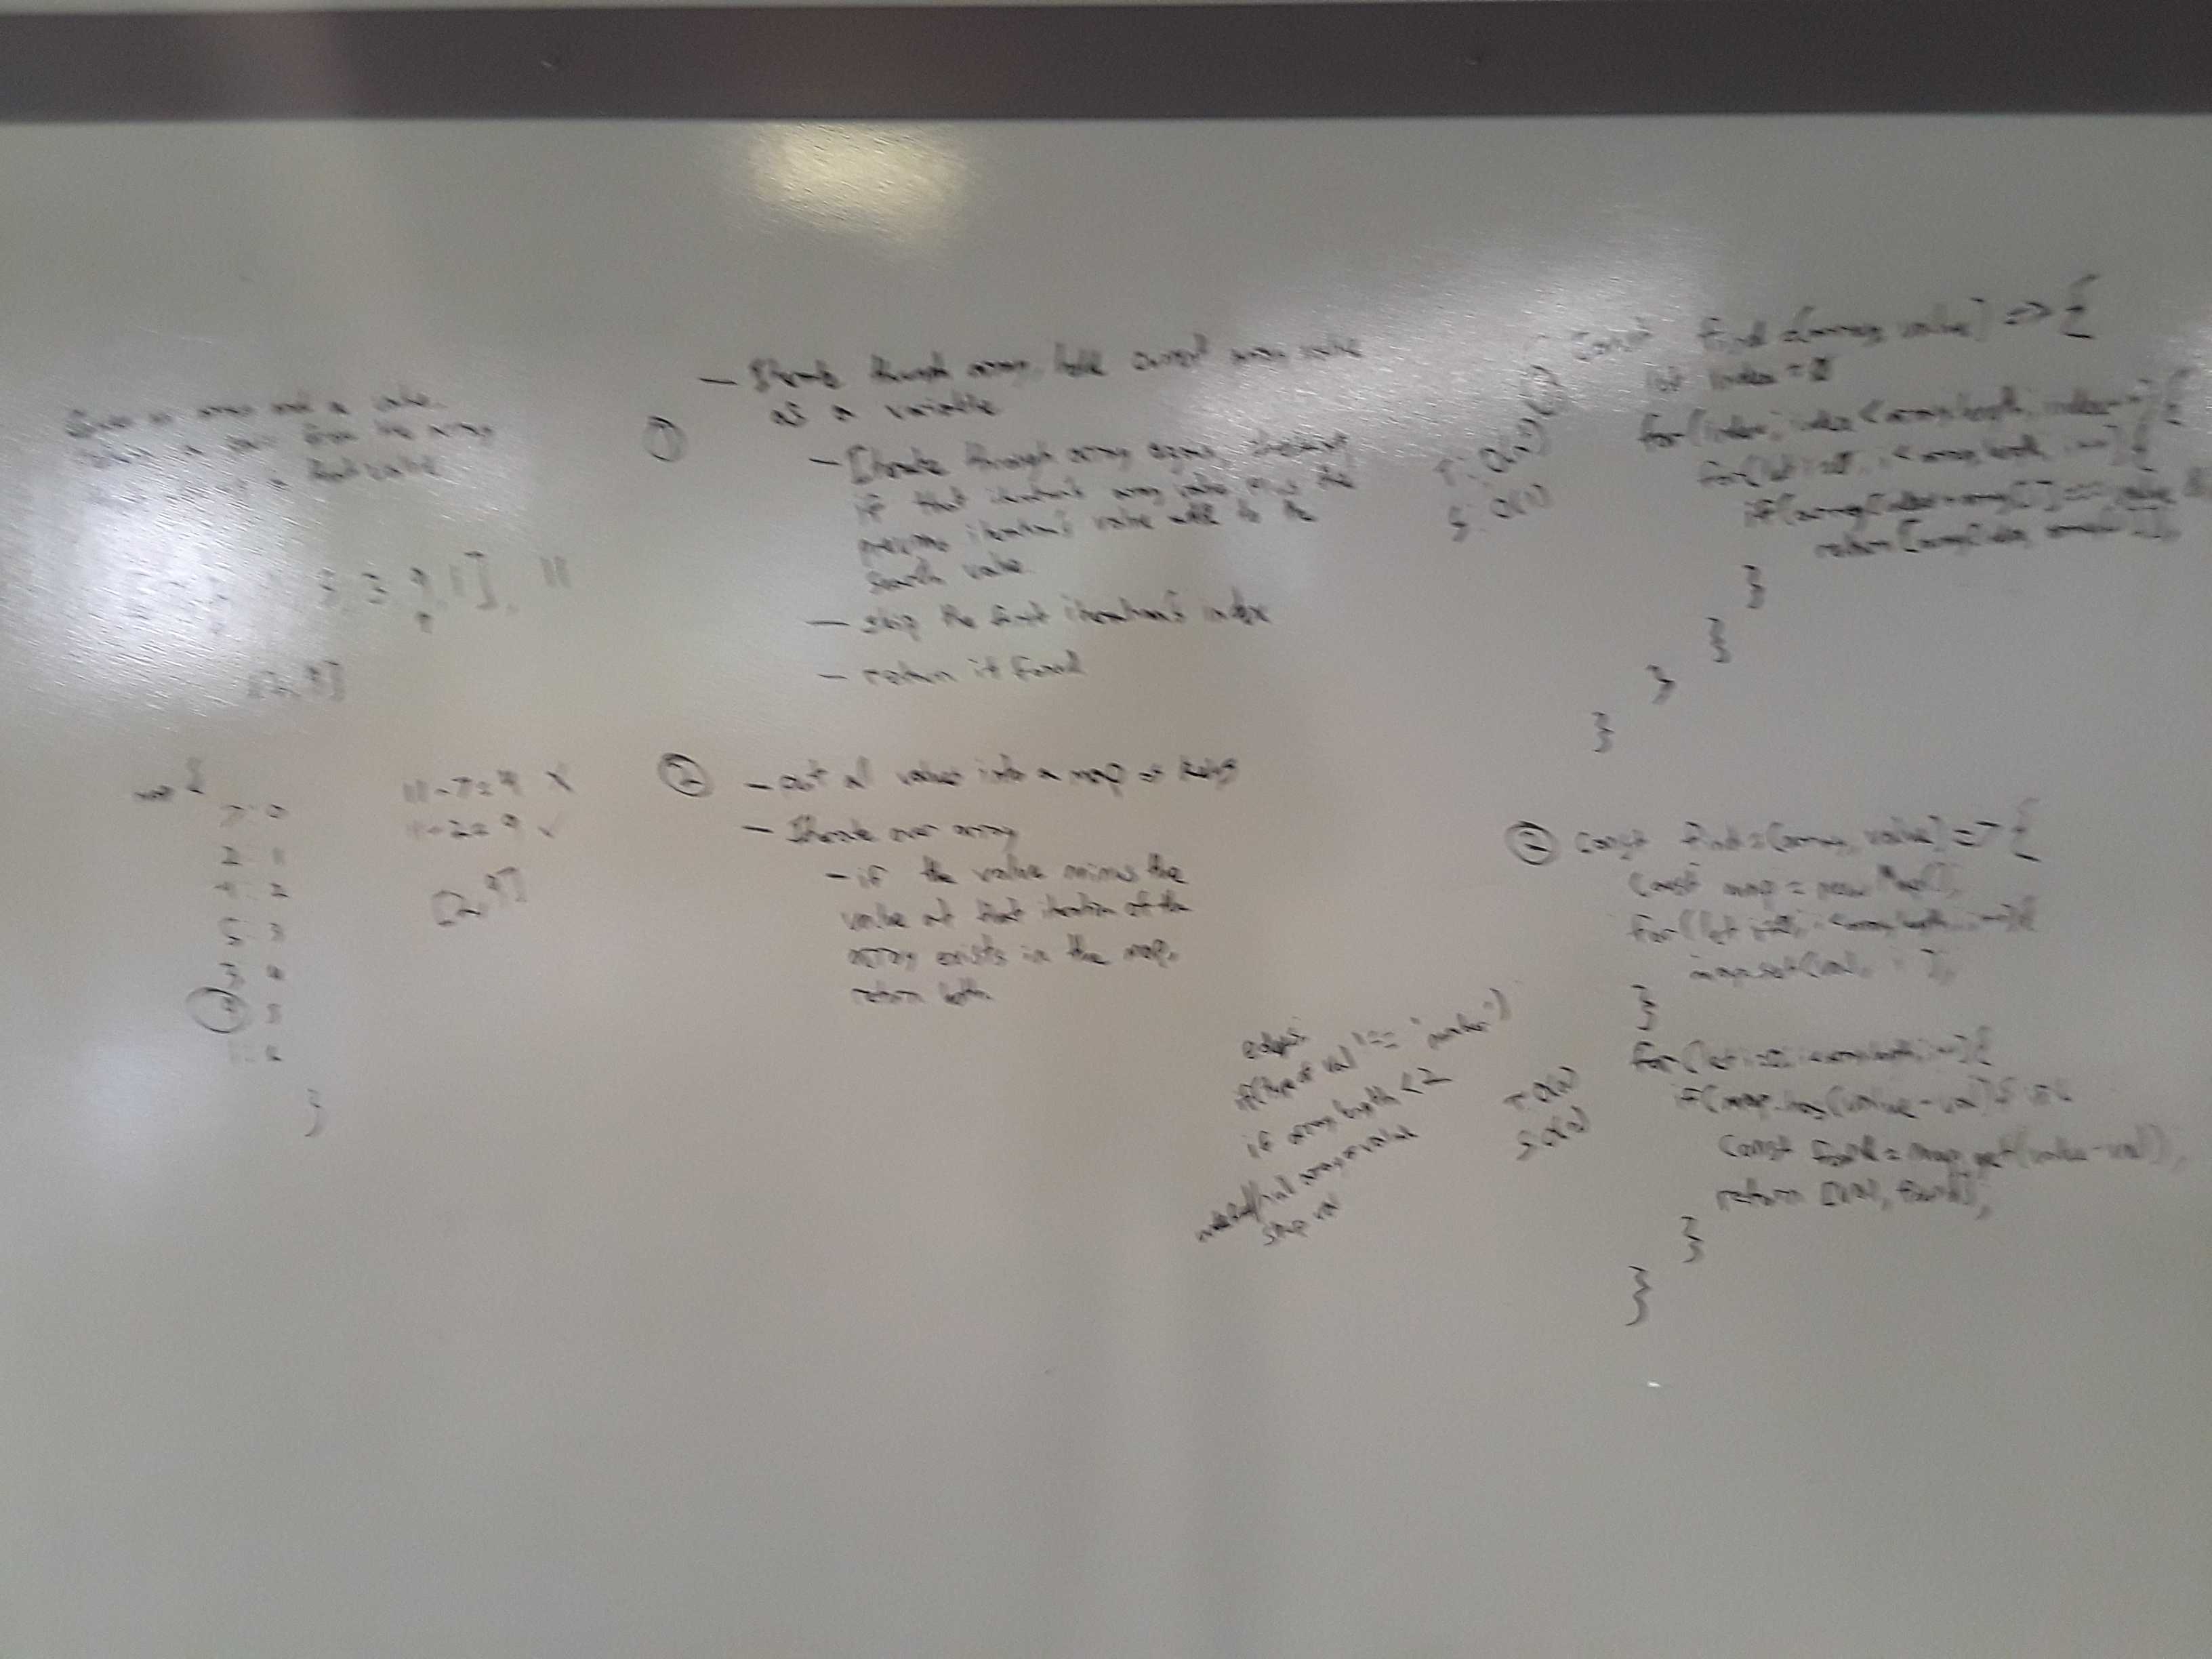 Given an array and a value,
return a pair from the array
that value
5 3 9 1], 11
[2, 9]
map {
7 0
2 1
4 2
5 3
3 4
9 5
1 6
}
11-7=4 X
11-2=9 ✓
[2, 9]
①
- Iterate through array, hold current array value
as a variable
- Iterate through array again, checking
if that iteration's array value plus the
previous iteration's value adds to the
search value
- skip the first iteration's index
- return if found
② - put all values into a map as keys
- Iterate over array
- if the value minus the
value at that iteration of the
array exists in the map,
return both.
edges
if(typeof val !== "number")
if array.length < 2
array value
T: O(n²)
S: O(1)
const find = (array, value) => {
let index = 0
for(index; index < array.length; index++) {
for(let i=0; i < array.length; i++) {
if(array[index] + array[i] == value
return [array[index], array[i]];
}
}
}
}
T: O(n)
S: O(n)
② const find = (array, value) => {
const map = new Map();
for(let i=0; i < array.length; i++) {
map.set(val, i);
}
for(let i=0; i < array.length; i++) {
if(map.has(value - val)
const found = map.get(value - val);
return [val, found];
}
}